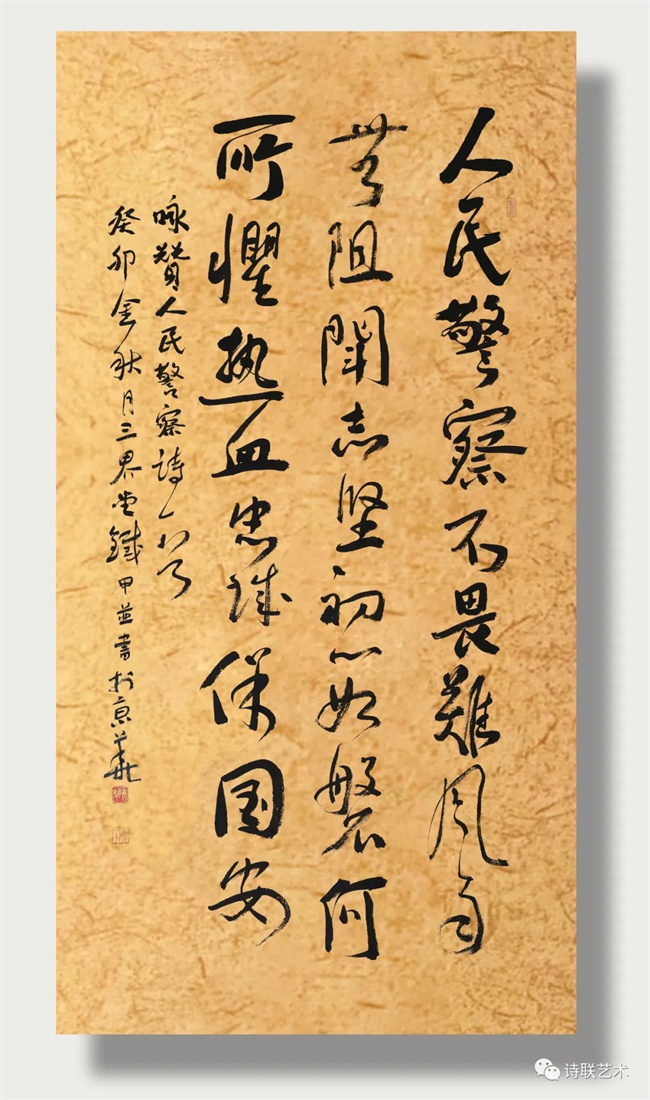 人民警察不畏難风雨
無阻闘志坚初心如磐何
所懼热血忠诚保国安
咏赞人民警察诗一首
癸卯金秋月三界堂鐵甲並書於京華
诗联艺术